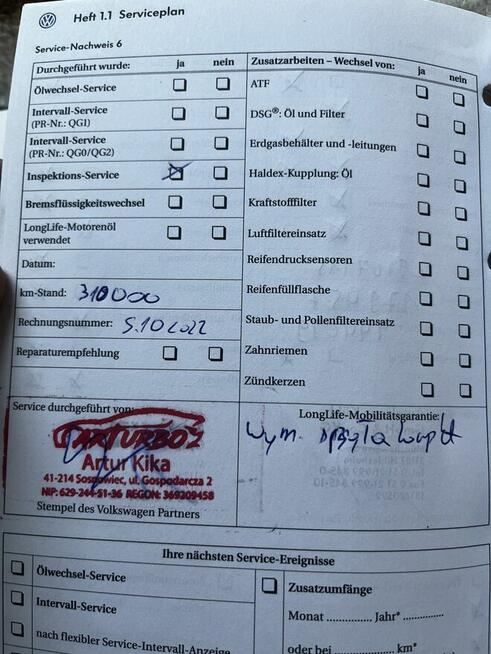 Heft 1.1 Serviceplan
Service-Nachweis 6
Durchgeführt wurde: ja nein
Ölwechsel-Service
Intervall-Service
(PR-Nr.: QG1)
Intervall-Service
(PR-Nr.: QG0/QG2)
Inspektions-Service
Bremsflüssigkeitswechsel
LongLife-Motorenöl
verwendet
Datum:
km-Stand: 310000
Rechnungsnummer: 5.10.2022
Reparaturempfehlung
Zusatzarbeiten – Wechsel von: ja nein
ATF
DSG®: Öl und Filter
Erdgasbehälter und -leitungen
Haldex-Kupplung: Öl
Kraftstofffilter
Luftfiltereinsatz
Reifendrucksensoren
Reifenfüllflasche
Staub- und Pollenfiltereinsatz
Zahnriemen
Zündkerzen
Service durchgeführt von:
Artur Kika
41-214 Sosnowiec, ul. Gospodarcza 2
NIP: 629-244-51-36 REGON: 369209458
Stempel des Volkswagen Partners
LongLife-Mobilitätsgarantie:
wym.
Ihre nächsten Service-Ereignisse
Ölwechsel-Service
Intervall-Service
nach flexibler Service-Intervall-Anzeige
Zusatzumfänge
Monat .............. Jahr* ..............
oder bei .................... km*